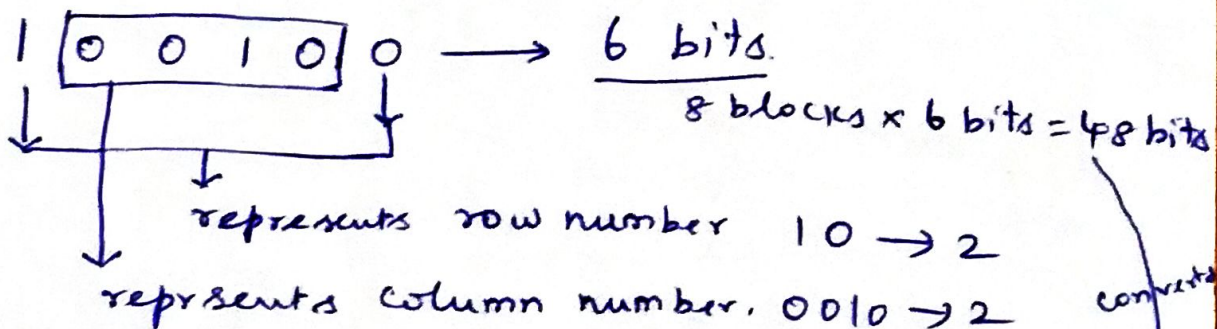 1 0 0 1 0 0 → 6 bits.
8 blocks x 6 bits = 48 bits
represents row number 10 → 2
reprsents column number. 0010 → 2
converts